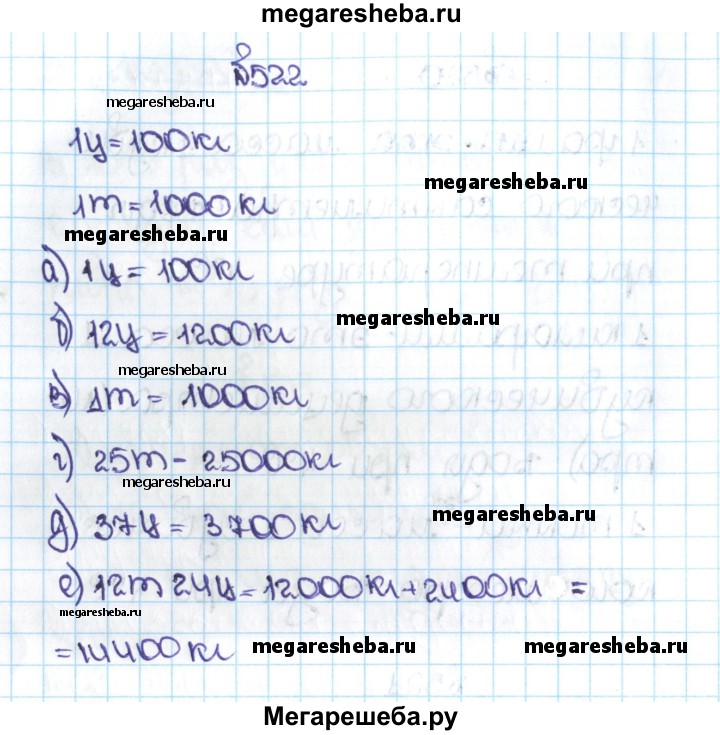 megaresheba.ru
№522
megaresheba.ru
1ц=100кг
megaresheba.ru
1т=1000кг
megaresheba.ru
а) 1ц = 100кг
б) 12ц = 1200кг
megaresheba.ru
megaresheba.ru
в) 1т = 1000кг
г) 25т - 25000кг
megaresheba.ru
д) 37ц = 3700кг
megaresheba.ru
е) 12т 24ц = 12000кг + 2400кг =
megaresheba.ru
= 14400кг
megaresheba.ru megaresheba.ru
Мегарешеба.ру